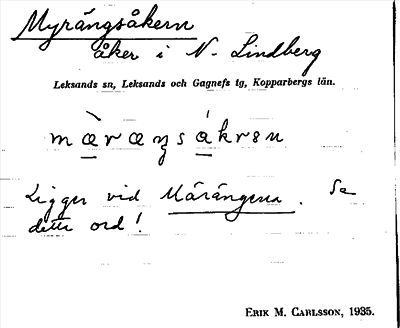 Myrängsåkern
åker i N. Lindberg
Leksands sn, Leksands och Gagnefs tg, Kopparbergs län.
Ligger vid Märängena. Se
detta ord!
ERIK M. CARLSSON, 1935.